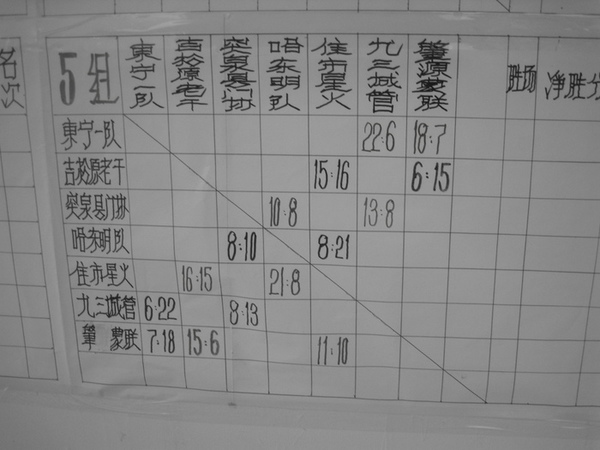 名次
5组 東宁一队 吉松原老干 突泉县门协 唔东明队 佳市星火 九三城管 肇源蒙联 胜场 净胜分
東宁一队 22:6 18:7
吉松原老干 15:16 6:15
突泉县门协 10:8 13:8
唔东明队 8:10 8:21
佳市星火 16:15 21:8
九三城管 6:22 8:13
肇 蒙联 7:18 15:6 11:10